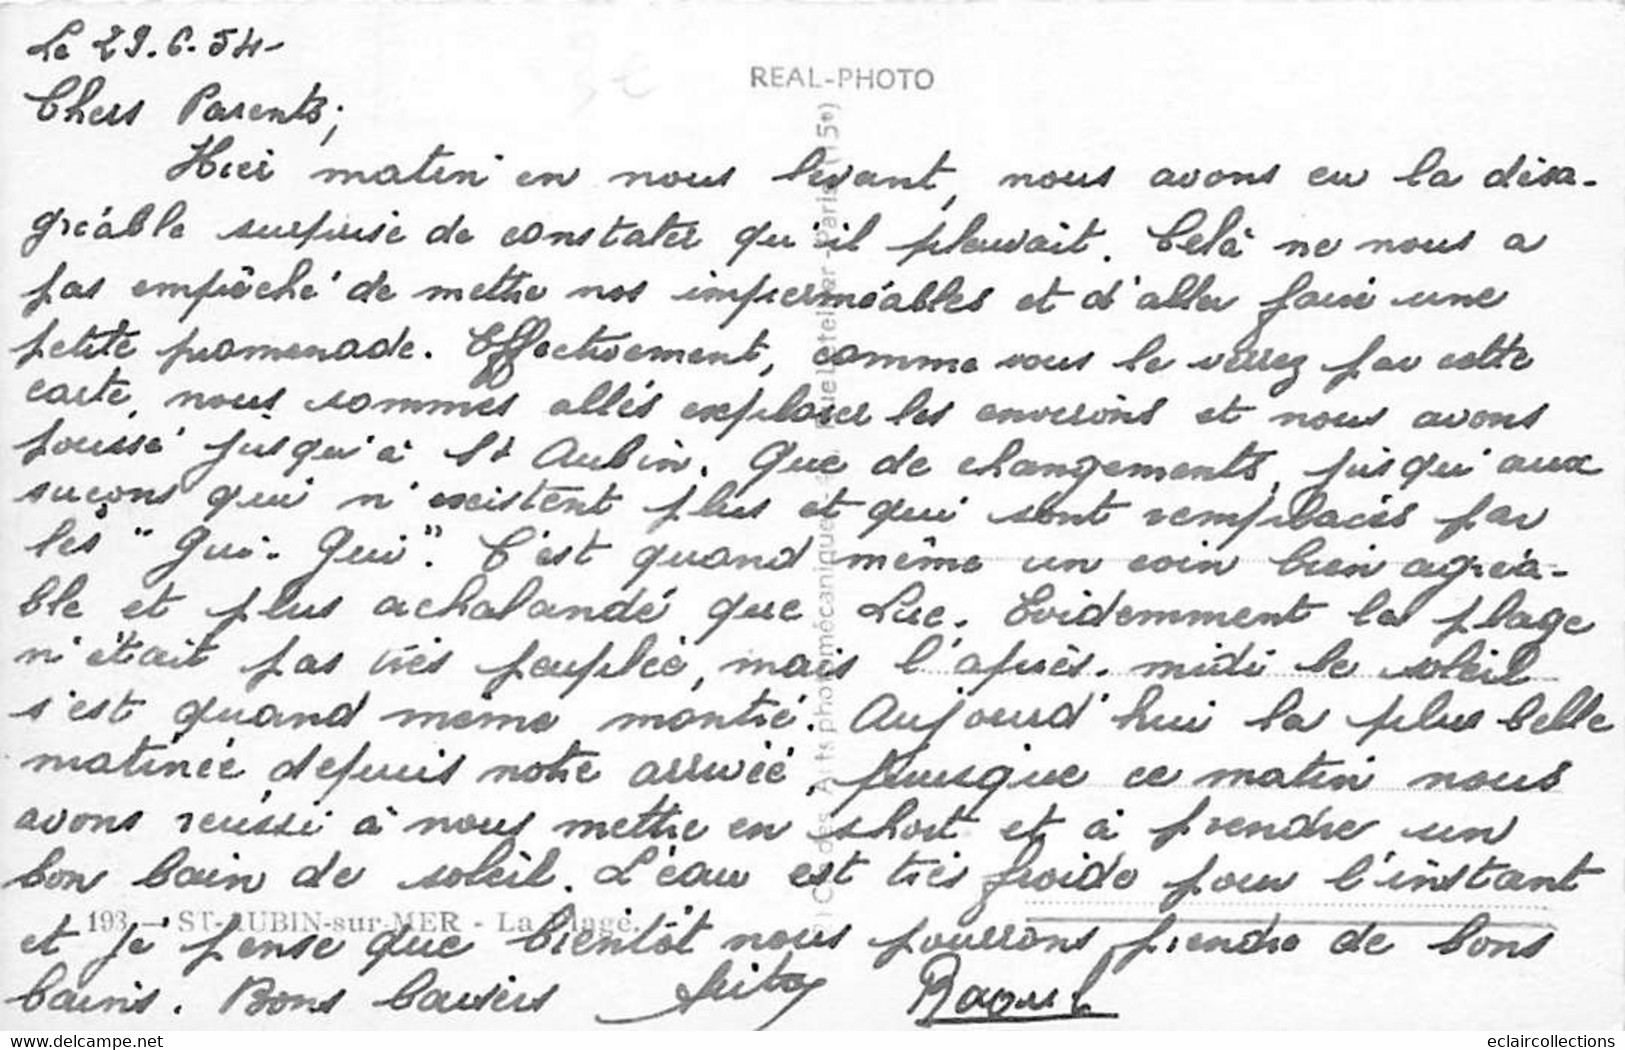 Le 29.6.54-
REAL-PHOTO
Chers Parents;
Hier matin en nous levant, nous avons eu la désa-
gréable surprise de constater qu'il pleuvait. Celà ne nous a
pas empêché de mettre nos imperméables et d'aller faire une
petite promenade. Effectivement, comme vous le verrez par cette
carte, nous sommes allés explorer les environs et nous avons
poussé jusqu'à St Aubin. Que de changements, jusqu'aux
suçons qui n'existent plus et qui sont remplacés par
les "Gui-Gui". C'est quand même un coin bien agréa-
ble et plus achalandé que Luc. Evidemment la plage
n'était pas très peuplée, mais l'après-midi le soleil
s'est quand même montré. Aujourd'hui la plus belle
matinée depuis notre arrivée, puisque ce matin nous
avons réussi à nous mettre en short et à prendre un
bon bain de soleil. L'eau est très froide pour l'instant
193 - ST-AUBIN-sur-MER - La Plage.
et je pense que bientôt nous pourrons prendre de bons
bains. Bons baisers Raoul
eclaircollections